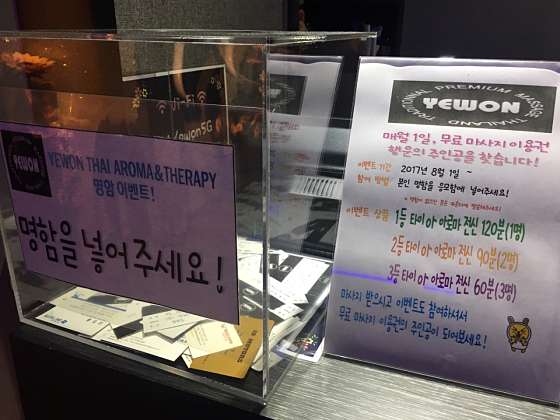 Wi-Fi
YEWON
YEWON THAI AROMA&THERAPY
명함 이벤트!
명함을 넣어주세요!
TRADITIONAL PREMIUM MASSAGE
YEWON
THAILAND
매월 1일, 무료 마사지 이용권
행운의 주인공을 찾습니다!
이벤트 기간 2017년 8월 1일 ~
참여 방법 본인 명함을 응모함에 넣어주세요!
이벤트 상품 1등 타이 아로마 전신 120분(1명)
2등 타이 아로마 전신 90분(2명)
3등 타이 아로마 전신 60분(3명)
마사지 받으시고 이벤트도 참여하셔서
무료 마사지 이용권의 주인공이 되어보세요!